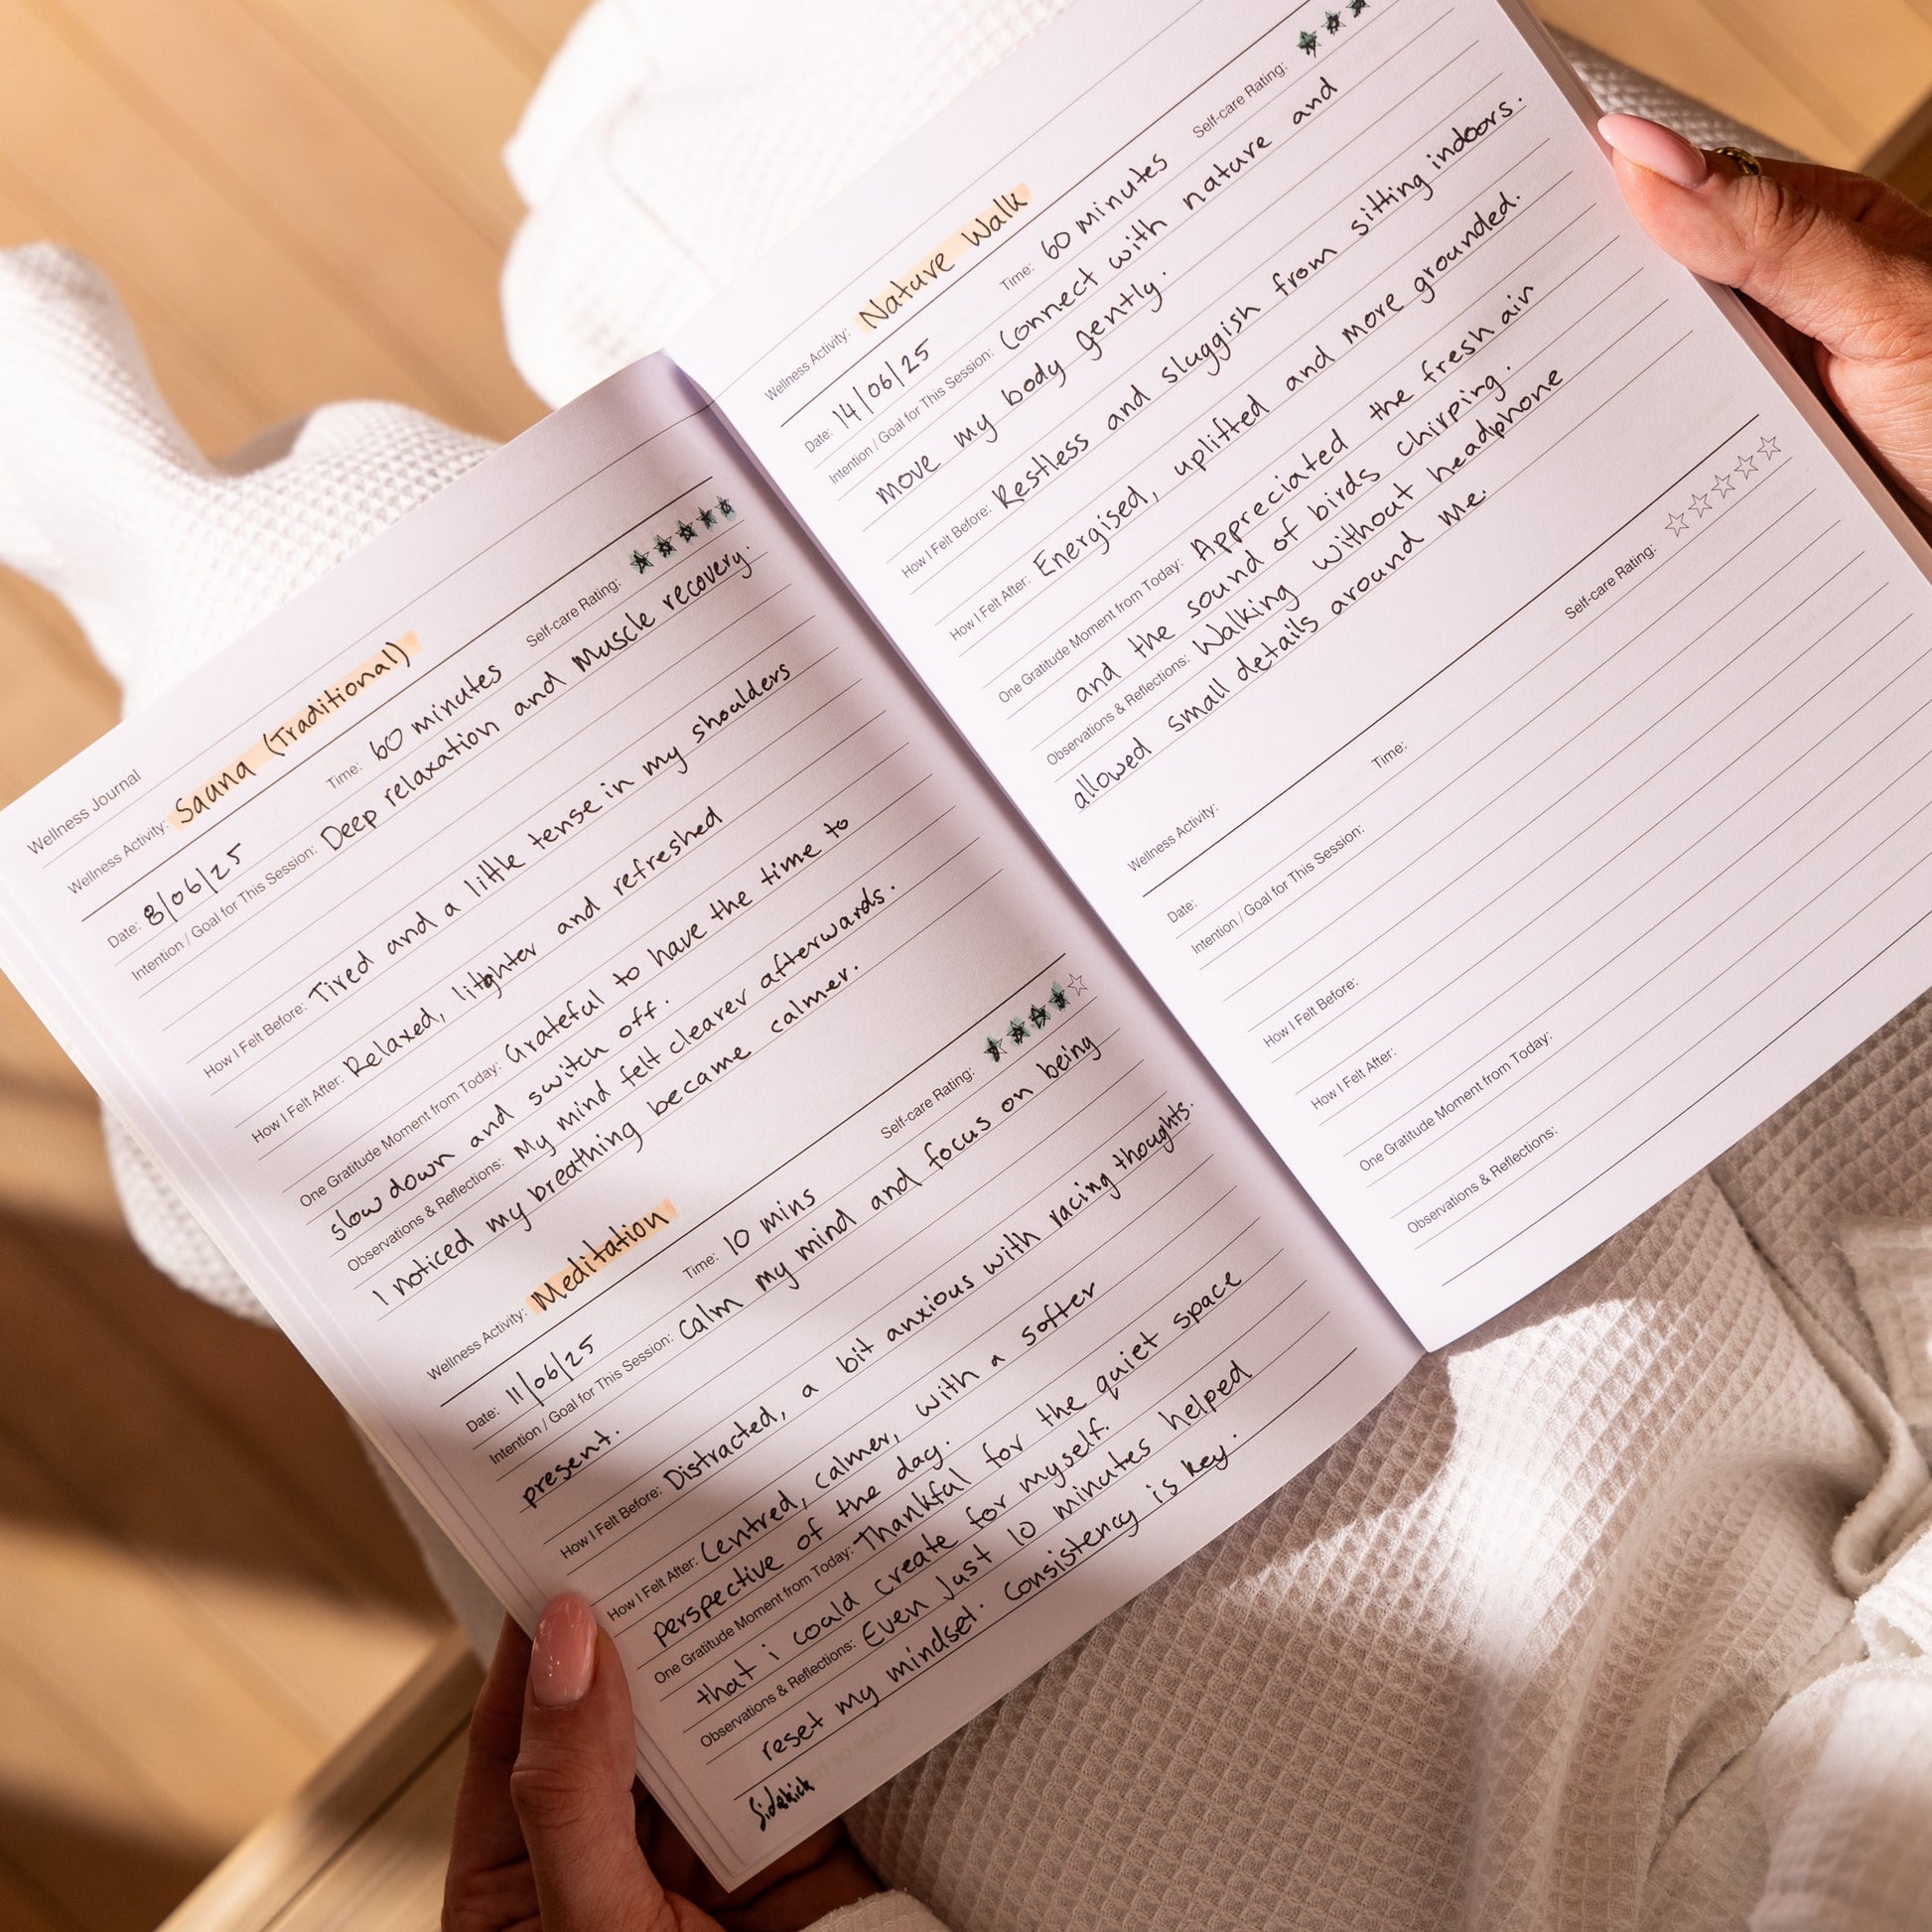 Wellness Journal
Wellness Activity: Sauna (Traditional)
Date: 8/06/25 Time: 60 minutes Self-care Rating:
Intention / Goal for This Session: Deep relaxation and Muscle recovery.
How I Felt Before: Tired and a little tense in my shoulders
How I Felt After: Relaxed, lighter and refreshed
One Gratitude Moment from Today: Grateful to have the time to
slow down and switch off.
Observations & Reflections: My mind felt clearer afterwards.
I noticed my breathing became calmer.
Wellness Activity: Meditation
Date: 11/06/25 Time: 10 mins Self-care Rating:
Intention / Goal for This Session: Calm my mind and focus on being
present.
How I Felt Before: Distracted, a bit anxious with racing thoughts.
How I Felt After: Centred, calmer, with a softer
perspective of the day.
One Gratitude Moment from Today: Thankful for the quiet space
that i could create for myself.
Observations & Reflections: Even Just 10 minutes helped
reset my mindset. Consistency is key.
Sidekick
Wellness Activity: Nature Walk
Date: 14/06/25 Time: 60 minutes Self-care Rating:
Intention / Goal for This Session: Connect with nature and
move my body gently.
How I Felt Before: Restless and sluggish from sitting indoors.
How I Felt After: Energised, uplifted and more grounded.
One Gratitude Moment from Today: Appreciated the fresh air
and the sound of birds chirping.
Observations & Reflections: Walking without headphone
allowed small details around me.
Wellness Activity:
Date: Time: Self-care Rating:
Intention / Goal for This Session:
How I Felt Before:
How I Felt After:
One Gratitude Moment from Today:
Observations & Reflections: